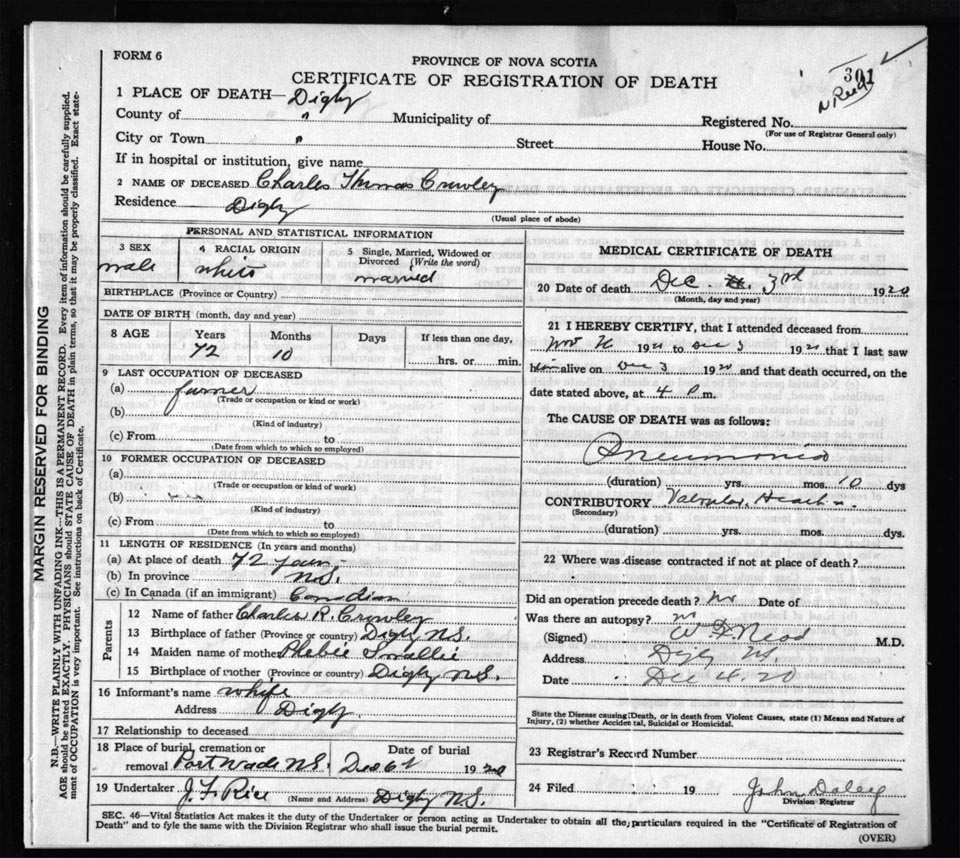 FORM 6
PROVINCE OF NOVA SCOTIA
CERTIFICATE OF REGISTRATION OF DEATH
301
1 PLACE OF DEATH— Digby
County of " Municipality of Registered No.
(For use of Registrar General only)
City or Town " Street House No.
If in hospital or institution, give name
2 NAME OF DECEASED Charles Thomas Crowley
Residence Digby
(Usual place of abode)
PERSONAL AND STATISTICAL INFORMATION
3 SEX 4 RACIAL ORIGIN 5 Single, Married, Widowed or Divorced (Write the word)
male white married
BIRTHPLACE (Province or Country)
DATE OF BIRTH (month, day and year)
8 AGE Years Months Days If less than one day,
72 10 hrs. or min.
9 LAST OCCUPATION OF DECEASED
(a) farmer
(Trade or occupation or kind or work)
(b)
(Kind of industry)
(c) From to
(Date from which to which so employed)
10 FORMER OCCUPATION OF DECEASED
(a)
(Trade or occupation or kind or work)
(b)
(Kind of industry)
(c) From to
(Date from which to which so employed)
11 LENGTH OF RESIDENCE (In years and months)
(a) At place of death 72 years
(b) In province N.S.
(c) In Canada (if an immigrant) Canadian
Parents
12 Name of father Charles R. Crowley
13 Birthplace of father (Province or country) Digby N.S.
14 Maiden name of mother Phebie Smallie
15 Birthplace of mother (Province or country) Digby N.S.
16 Informant's name whife
Address Digby
17 Relationship to deceased
18 Place of burial, cremation or removal Port Wade N.S. Date of burial Dec 6t 1920
19 Undertaker J. F. Rice (Name and Address) Digby N.S.
MEDICAL CERTIFICATE OF DEATH
20 Date of death Dec. 3rd 1920
(Month, day and year)
21 I HEREBY CERTIFY, that I attended deceased from
Nov 1920 to Dec 3 1920 that I last saw
him alive on Dec 3 1920 and that death occurred, on
date stated above, at 4 p m.
The CAUSE OF DEATH was as follows:
Pneumonia
(duration) yrs. mos. 10 dys
CONTRIBUTORY Valvular Heart
(Secondary)
(duration) yrs. mos. dys.
22 Where was disease contracted if not at place of death?
Did an operation precede death? no Date of
Was there an autopsy? no
(Signed) M.D.
Address Digby NS.
Date Dec 4. 20
State the Disease causing Death, or in death from Violent Causes, state (1) Means and Nature of
Injury, (2) whether Accidental, Suicidal or Homicidal.
23 Registrar's Record Number
24 Filed 19 John Daley
Division Registrar
SEC. 46—Vital Statistics Act makes it the duty of the Undertaker or person acting as Undertaker to obtain all the particulars required in the "Certificate of Registration of
Death" and to fyle the same with the Division Registrar who shall issue the burial permit.
(OVER)
MARGIN RESERVED FOR BINDING
N.B.—WRITE PLAINLY WITH UNFADING INK—THIS IS A PERMANENT RECORD. Every item of information should be carefully supplied.
AGE should be stated EXACTLY. PHYSICIANS should STATE CAUSE OF DEATH in plain terms, so that it may be properly classified. Exact state-
ment of OCCUPATION is very important. See instructions on back of Certificate.